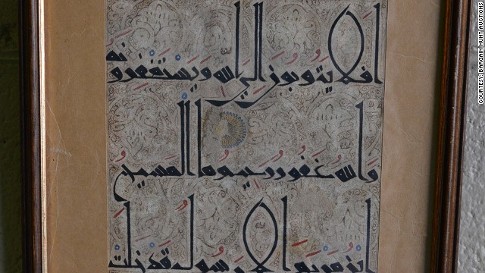 افلا يتوبون الى الله ويستغفرونه
والله غفور رحيم ما المسيح
ابن مريم الا رسول قد خلت
COURTESY HUNT AUCTIONS